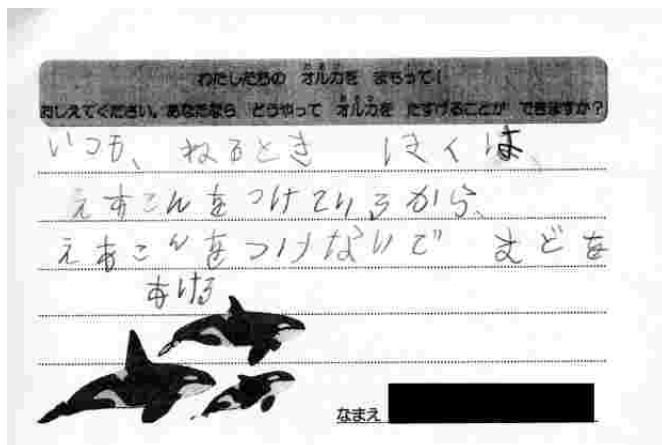 わたしたちの オルカを まもって!
おしえてください。あなたなら どうやって オルカを たすけることが できますか?
いつも、ねるとき ぼくは、
えあこんをつけているから、
えあこんをつけないで まどを
あける
なまえ